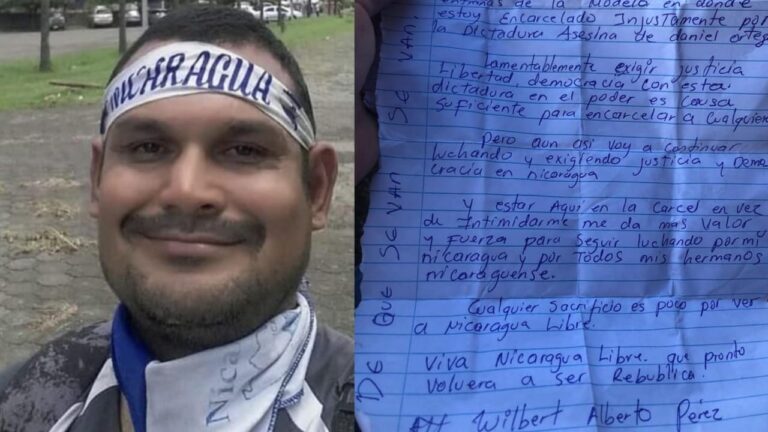 NICARAGUA
Nica
entrañas de la Modelo en donde
estoy Encarcelado Injustamente por
la Dictadura Asesina de daniel orteg
Lamentablemente exigir justicia
Libertad, democracia con esta
dictadura en el poder es causa
suficiente para encarcelar a cualquier
Pero aun asi voy a continuar
luchando y exigiendo justicia y Demo
cracia en nicaragua
Y estar Aqui en la carcel en vez
de Intimidarme me da mas valor
y fuerza para seguir luchando por mi
nicaragua y por Todos mis hermanos
nicaraguense.
Cualquier Sacrificio es poco por ver
a Nicaragua Libre.
Viva Nicaragua Libre. que pronto
volvera a ser Republica.
Att Wilbert Alberto Pérez
DE QUE SE VAN SE VAN.